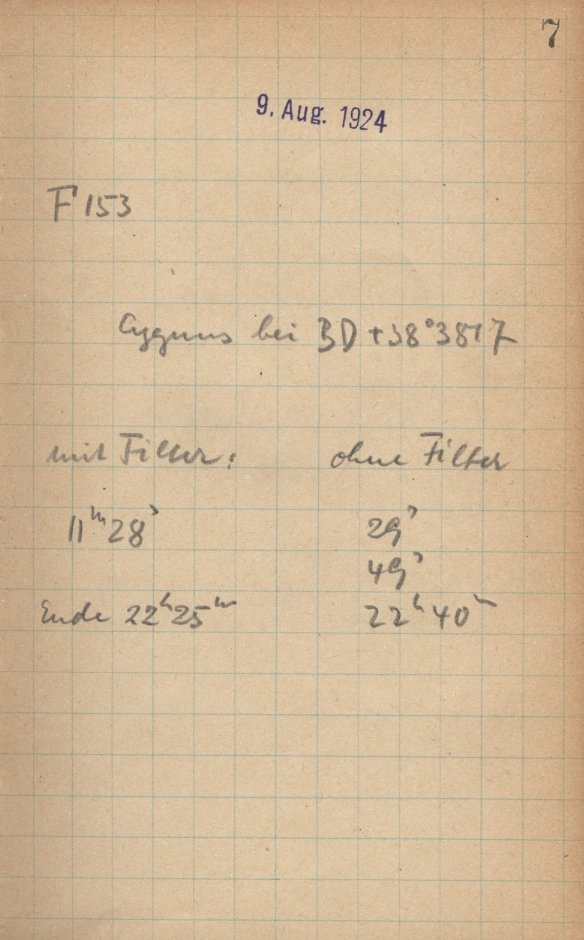 7
9. Aug. 1924
F 153
Cygnus bei BD +38°3817
mit Filter: ohne Filter
11ᵐ28ˢ 29ˢ
49ˢ
Ende 22ʰ25ᵐ 22ʰ40ᵐ